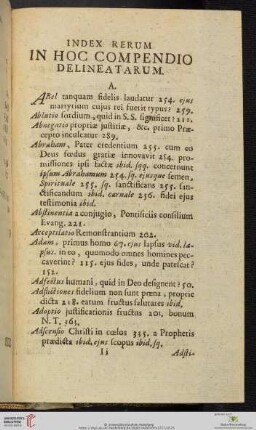 INDEX RERUM
IN HOC COMPENDIO
DELINEATARUM.
A.
ABel tanquam fidelis laudatur 254. ejus
martyrium cujus rei fuerit typus? 259.
Ablutio sordium, quid in S.S. significet? 211.
Abnegatio propriæ justitiæ, &c. primo Præ-
cepto inculcatur 289.
Abraham, Pater credentium 255. cum eo
Deus fœdus gratiæ innovavit 254. pro-
missiones ipsi factæ ibid. sqq. concernunt
ipsum Abrahamum 254. sq. ejusque semen,
Spirituale 255. sq. sanctificans 255. san-
ctificandum ibid. carnale 256. fidei ejus
testimonia ibid.
Abstinentia a conjugio, Pontificiis consilium
Evang. 221.
Acceptilatio Remonstrantium 202.
Adam, primus homo 67. ejus lapsus vid. la-
psus. in eo, quomodo omnes homines pec-
caverint? 115. ejus fides, unde patescat?
152.
Adfectus humani, quid in Deo designent? 50.
Adflictiones fidelium non sunt pœnæ, proprie
dictæ 218. earum fructus salutares ibid.
Adoptio justificationis fructus 201. bonum
N.T. 363.
Adscensio Christi in cœlos 325. a Prophetis
prædicta ibid. ejus scopus ibid. sq.
Ii Adsti-